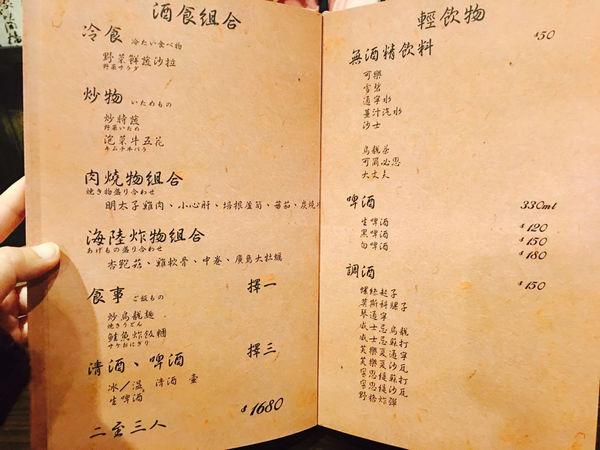 酒食組合
冷食 冷たい食べ物
野菜鮮蔬沙拉
野菜サラダ
炒物 いためもの
炒時蔬
野菜いため
泡菜牛五花
キムチ牛バラ
肉燒物組合
焼き物盛り合わせ
明太子雞肉、小心肝、培根蘆筍、蕃茄、炭燒
海陸炸物組合
あげもの盛り合わせ
杏鮑菇、雞軟骨、中卷、廣島大牡蠣
食事 ご飯もの 擇一
炒烏龍麵
焼きうどん
鮭魚炸飯糰
サケおにぎり
清酒、啤酒 擇三
冰/溫 清酒 壹
生啤酒
$1680
二至三人
輕飲物
$50
無酒精飲料
可樂
雪碧
通寧水
薑汁汽水
沙士
烏龍茶
可爾必思
大丈夫
啤酒 330ml
生啤酒 $120
黑啤酒 $150
白啤酒 $180
調酒 $150
螺絲起子
莫斯科騾子
琴通寧
威士忌烏龍
威士忌蘇打
芙樂夏通寧
芙樂夏沙瓦
寧思緹蘇打
寧思緹沙瓦
野格炸彈